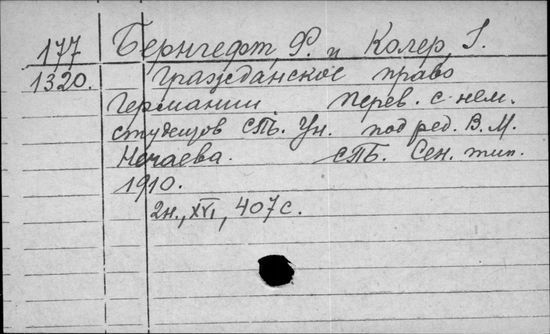 177 Бернгефт, Ф. и Колер, I.
1320. Гражданское право
Германии. Перев. с нем.
студентов СПб. Ун. под ред. В. М.
Нечаева. СПб. Сен. тип.
1910.
2н., XVI, 407 с.